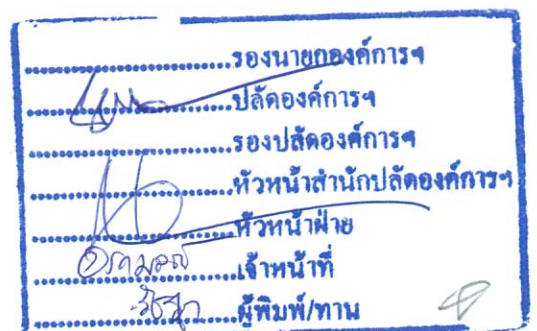 ....................รองนายกองค์การฯ
....................ปลัดองค์การฯ
....................รองปลัดองค์การฯ
....................หัวหน้าสำนักปลัดองค์การฯ
....................หัวหน้าฝ่าย
....................เจ้าหน้าที่
....................ผู้พิมพ์/ทาน